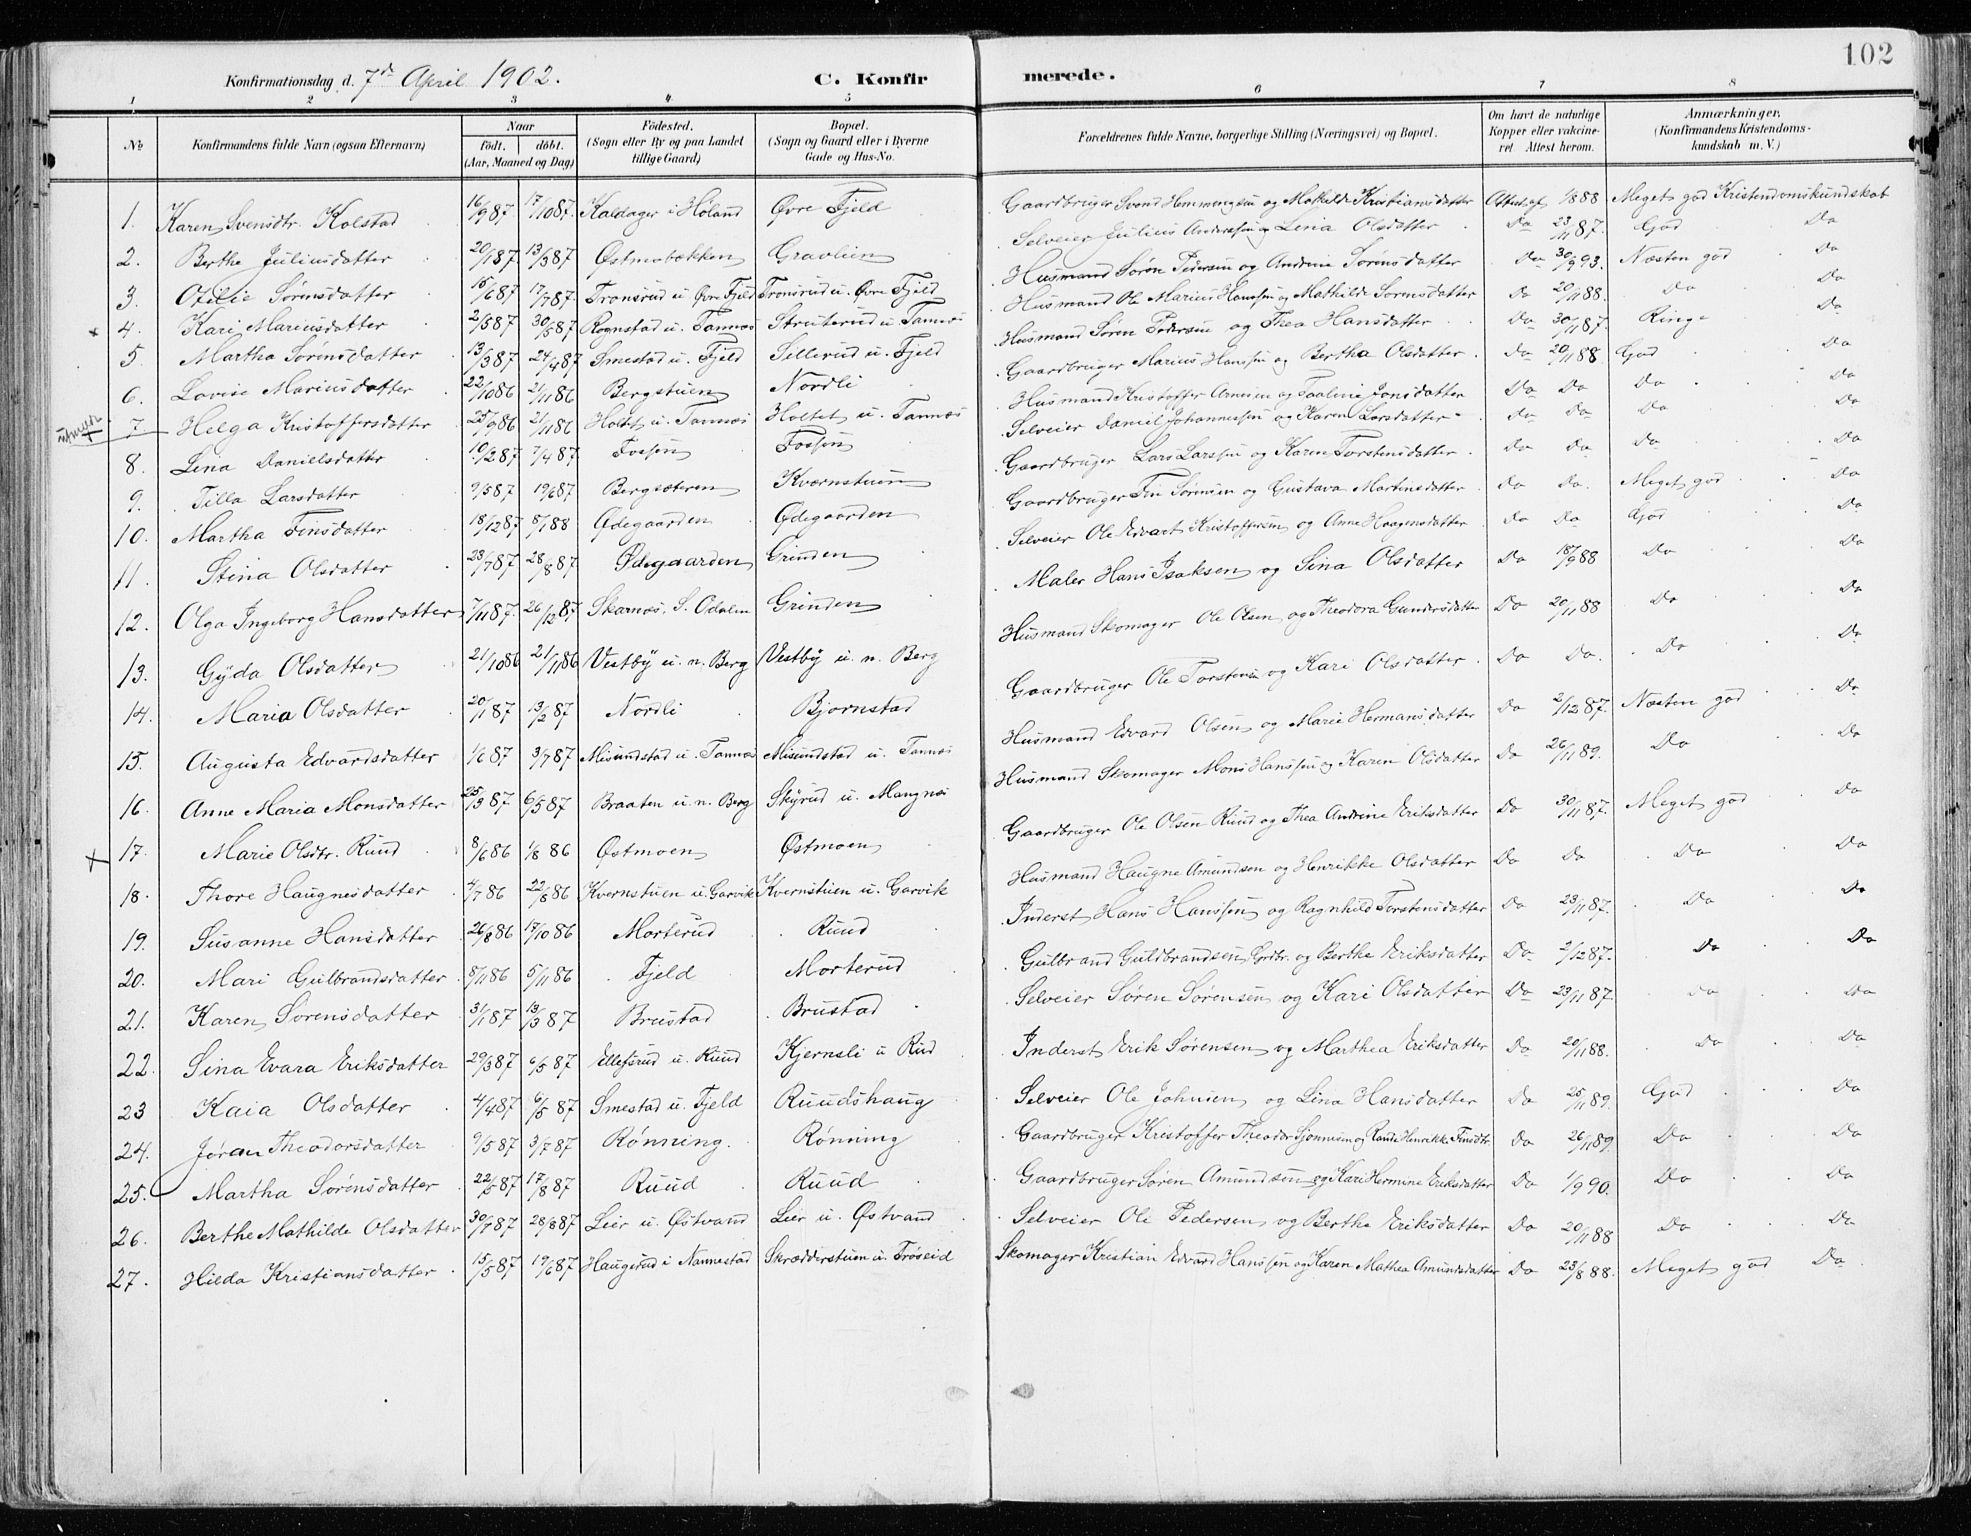 102
Konfirmationsdag d. 7de April 1902. C. Konfirmerede.
1 2 3 4 5 6 7 8
№ Konfirmandens fulde Navn (ogsaa Efternavn) Naar födt. döbt. (Aar, Maaned og Dag) Födested. (Sogn eller By og paa Landet tillige Gaard) Bopæl. (Sogn og Gaard eller i Byerne Gade og Hus-No. Forældrenes fulde Navne, borgerlige Stilling (Næringsvei) og Bopæl. Om havt de naturlige Kopper eller vakcineret Attest herom. Anmærkninger. (Konfirmandens Kristendomskundskab m. V.)
1. Karen Svensdtr. Kolstad 16/9 87 17/10 87. Kaldager i Høland Øvre Fjeld Gaardbruger Svend Hemmingsen og Mathilde Kristiansdatter Attest af 1/8 88 Meget god Kristendomskundskab
2. Berthe Juliusdatter 20/1 87 13/3 87 Østmobækken Gravlien Selveier Julius Anderssen og Lina Olsdatter Do 23/11 87. God Do
3. Otilie Sørensdatter 16/6 87 17/7 87. Tronsrud u. Øvre Fjeld Tronsrud u. Øvre Fjeld Husmand Søren Pedersen og Andrine Sørensdatter Do 30/9 93. Næsten god Do
4. Kari Mariusdatter 2/5 87 30/5 87 Rognstad u. Tannæs Struterud u. Tannæs Husmand Ole Marius Hanssen og Mathilde Sørensdatter Do 20/11 88. Do Do
5. Martha Sørensdatter 13/3 87 24/4 87 Smestad u. Fjeld Sellerud u. Fjeld Husmand Søren Pedersen og Thea Hansdatter Do 30/11 87. Ringe Do
6. Lovise Mariusdatter 22/10 86 21/11 86 Bergstuen Nordli Gaardbruger Marius Hanssen og Bertha Olsdatter Do 20/11 88. God Do
7. Helga Kristoffersdatter 25/9 86 21/11 86 Holtet u. Tannæs Holtet u. Tannæs Husmand Kristoffer Arnesen og Paaline Jonsdatter Do Do Do Do
8. Lina Danielsdatter 10/2 87 7/4 87 Fossen Fossen Selveier Daniel Johannessen og Karen Larsdatter Do Do Do Do
9. Tilla Larsdatter 9/5 87 19/6 87 Bergsæteren Kværnstuen Gaardbruger Lars Larssen og Karen Torstensdatter Do Do Do Do
10. Martha Finsdatter 18/12 87 8/1 88 Ødegaarden Ødegaarden Gaardbruger Fin Sørensen og Gustava Martinsdatter Do Do. Meget god Do
11. Stina Olsdatter 23/7 87 28/8 87 Ødegaarden Grinden Selveier Ole Edvart Kristoffersen og Anne Haagensdatter Do Do God Do
12. Olga Ingeborg Hansdatter 7/11 87. 26/12 87 Skarnæs. S. Odalen Grinden Maler Hans Isaksen og Sina Olsdatter Do 18/9 88 Do Do
13. Gyda Olsdatter 21/10 86 21/11 86 Vestby u. n. Berg Vestby u. n. Berg Husmand Skomager Ole Olsen og Theodora Gundersdatter Do 20/11 88 Do Do
14. Maria Olsdatter 20/1 87 13/2 87 Nordli Bjornstad Gaardbruger Ole Torstensen og Kari Olsdatter Do Do. Do Do
15. Augusta Edvardsdatter 1/6 87 3/7 87 Misundstad u. Tannæs Misundstad u. Tannæs Husmand Edvard Olsen og Marie Hermansdatter Do 2/12 87. Næsten god Do
16. Anne Maria Monsdatter 25/3 87 6/5 87 Braaten u. n. Berg Skyrud u. Mangnæs Husmand Skomager Mons Hanssen og Karen Olsdatter Do 26/11 89. Do Do
17. Marie Olsdtr. Ruud 8/6 86 1/8 86 Østmoen Østmoen Gaardbruger Ole Olsen Ruud og Thea Andrine Eriksdatter Do 30/11 87. Meget god Do
18. Thore Haugnesdatter 4/7 86 22/8 86 Kvernstuen u. Garvik Kvernstuen u. Garvik Husmand Haugne Amundsen og Henrikke Olsdatter Do Do Do Do
19. Susanne Hansdatter 26/8 86 17/10 86 Morterud Ruud Inderst Hans Hanssen og Ragnhild Torstensdatter Do 23/11 87. Do Do
20. Mari Gulbrandsdatter 8/11 86 5/11 86 Fjeld Morterud Gulbrand Guldbrandsen, Grdbr. og Berthe Eriksdatter Do 2/12 87. Do Do
21. Karen Sørensdatter 31/1 87 13/3 87 Brustad Brustad Selveier Søren Sørensen og Kari Olsdatter Do 23/11 87. Do Do
22. Sina Evara Eriksdatter 29/3 87 6/5 87 Ellefsrud u. Ruud Kjernsli u Rud Inderst Erik Sørensen og Marthea Eriksdatter Do 20/11 88. Do Do
23 Kaia Olsdatter 4/4 87 6/5 87 Smestad u. Fjeld Ruudshaug Selveier Ole Johnsen og Lina Hansdatter Do 25/11 89. God Do
24. Jøran Theodorsdatter 9/5 87 3/7 87 Rønning. Rønning Gaardbruger Kristoffer Theodor Simensen og Rande Henrikke Finsdtr. Do 26/11 89. Do Do
25. Martha Sørensdatter 22/5 87 17/8 87 Ruud Ruud Gaardbruger Søren Amundsen og Kari Hermine Eriksdatter Do 1/9 90. Do Do
26. Berthe Mathilde Olsdatter 30/7 87 28/8 87 Lier u. Østvand Lier u. Østvand Selveier Ole Pedersen og Berthe Eriksdatter Do 20/11 88 Do Do
27. Hilda Kristiansdatter 15/5 87 19/6 87 Haugerud i Nannestad Skrædderstuen u. Trøseid Skomager Kristian Edvard Hanssen og Karen Mathea Amundsdatter Do 23/8 88. Meget god Do